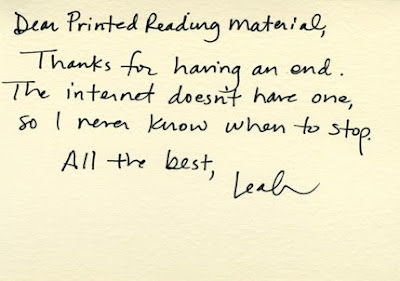 Dear Printed Reading Material,
Thanks for having an end.
The internet doesn't have one,
so I never know when to stop.
All the best,
Leah